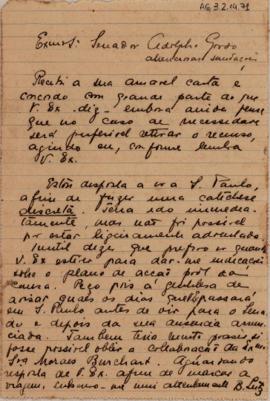 AG 3.2.14.71
Exmo Sr. Senador Adolpho Gordo
attenciosas saudações
Recebi a sua amavel carta e
concordo com grande parte do que
V. Ex. diz, embora ainda pense
que no caso de necessidade
será preferivel retirar o recurso,
agindo eu, conforme lembra
V. Ex.
Estou disposta a ir a S. Paulo,
afim de fazer uma catechese
discreta. Teria ido immedia-
tamente, mas não foi possivel
por estar ligeiramente adoentada.
Inutil dizer que prefiro ir quando
V. Ex. estiver para dar-me indicações
sobre o plano de acção prol da
causa. Peço pois a gentileza de
avisar quais os dias que passara
em S. Paulo antes de vir para o Sena-
do e depois da sua ausencia annun-
ciada. Tambem teria muito prazer, si
fosse possivel obter a collaboração da Exma
Sra Moraes Burchard. Aguardando
resposta de V. Ex. afim de marcar a
viagem, subscrevo-me mui attentamente B. Lutz